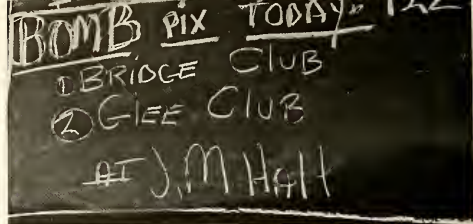 BOMB PIX TODAY
① BRIDGE CLUB
② GLEE CLUB
AT J.M Hall